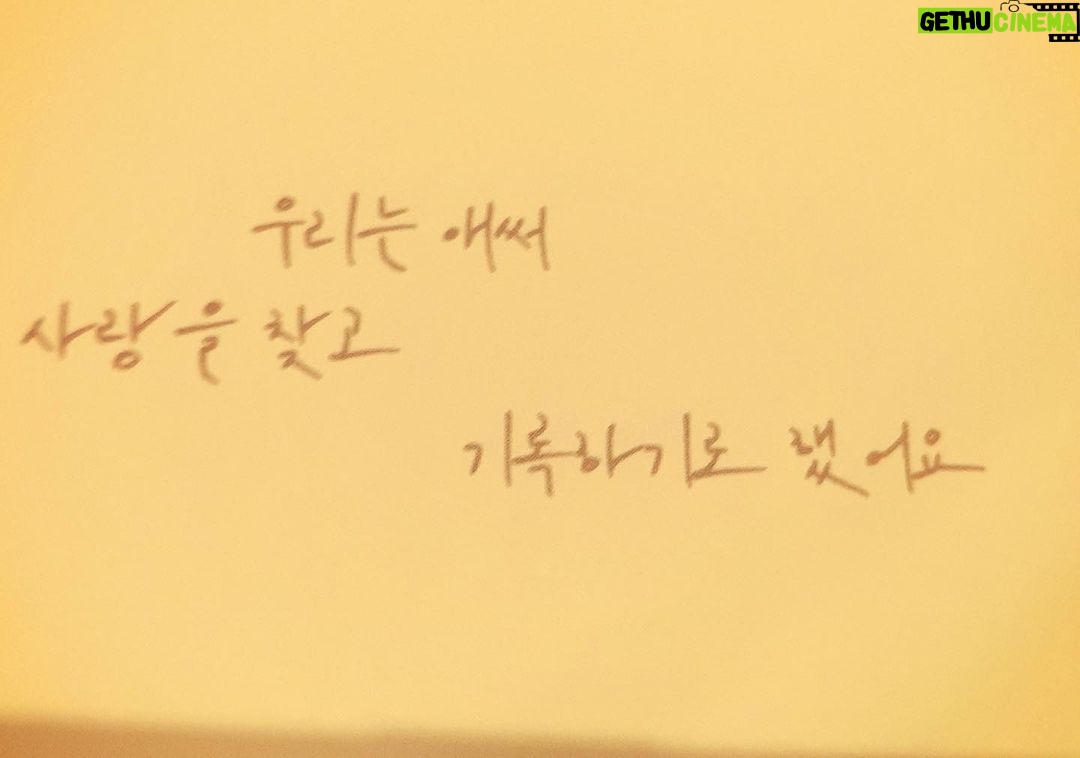 GETHU CINEMA
우리는 애써
사랑을 찾고
기록하기로 했어요